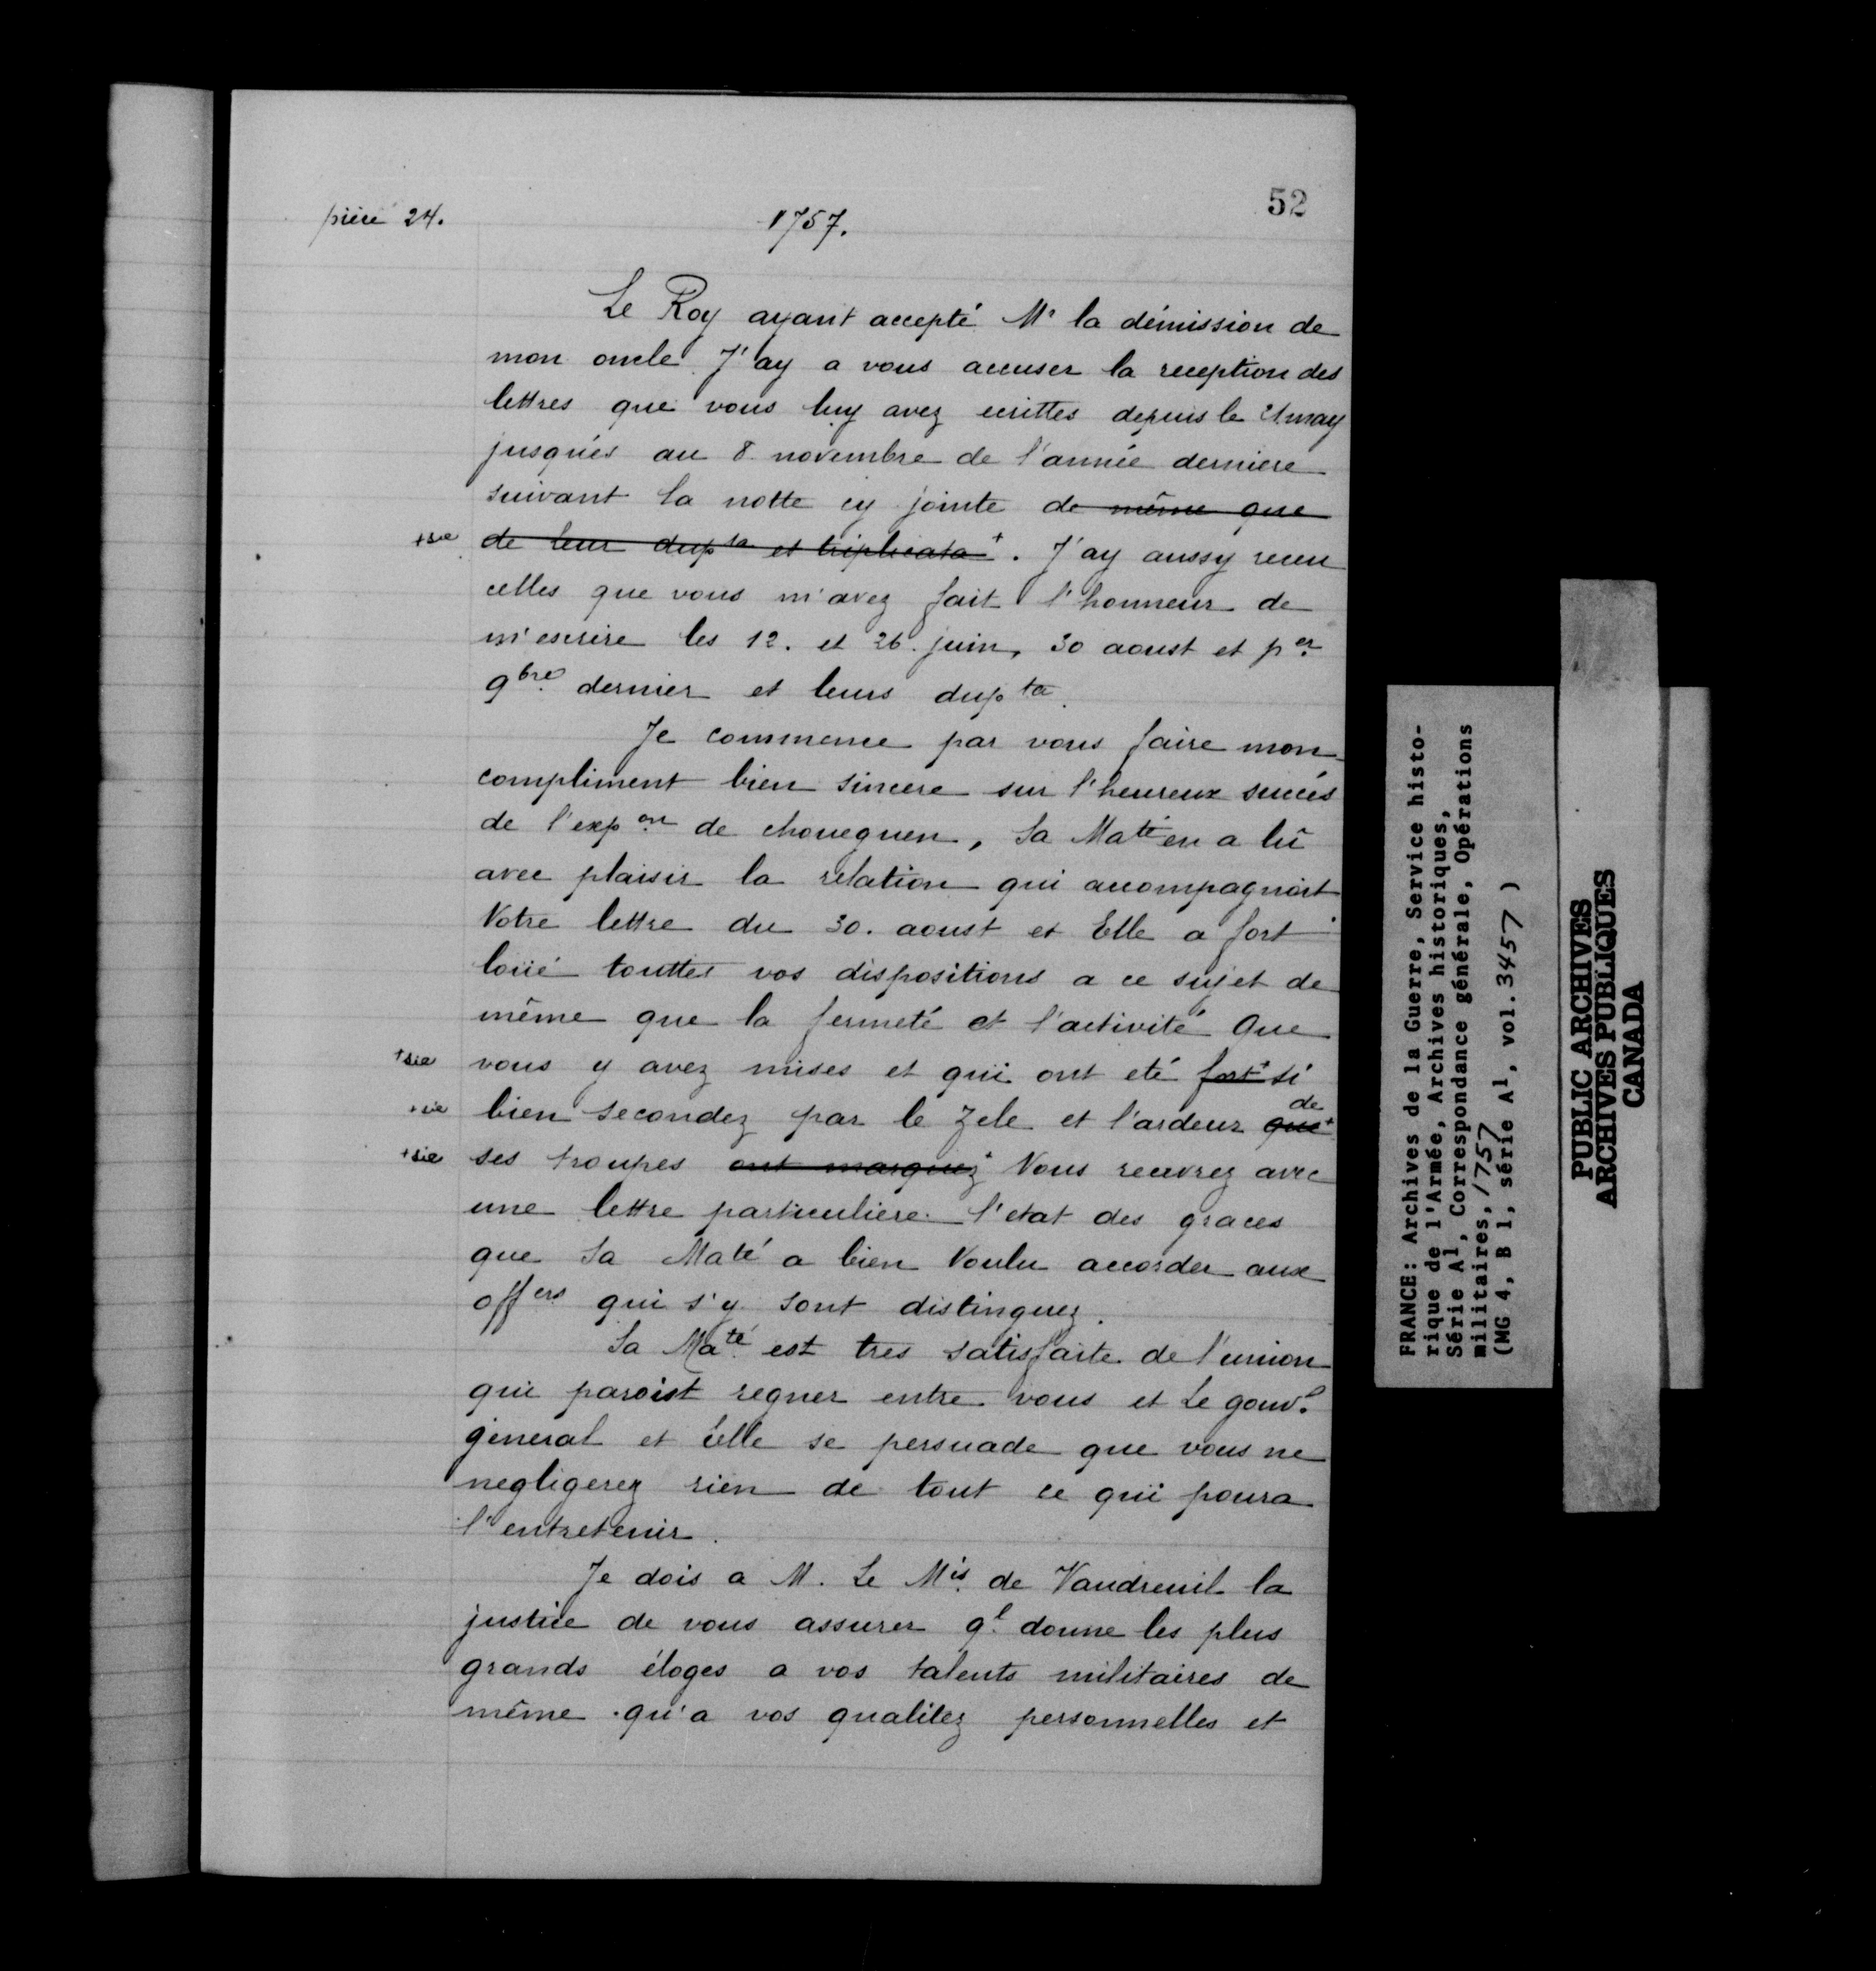 52
pièce 24.
1757.
Le Roy ayant accepté Mr la démission de
mon oncle J'ay a vous accuser la reception des
lettres que vous luy avez ecrittes depuis le may
jusqués au 8 novembre de l'année derniere
suivant la notte cy jointe de même que
+sic de leur dupta et triplicata+. J'ay aussy receu
celles que vous m'avez fait l'honneur de
m'escrire les 12. et 26. juin, 30 aoust et per
9bre dernier et leurs dupta.
Je commence par vous faire mon
compliment bien sincere sur l'heureux succés
de l'expon de choueguen, Sa Maté en a lû
avec plaisir la relation qui accompagnoit
Votre lettre du 30. aoust et Elle a fort
loüé touttes vos dispositions a ce sujet de
même que la fermeté et l'activité que
+sic vous y avez mises et qui ont eté fort+ si
+sic bien secondez par le Zele et l'ardeur que+ de
+sic ses troupes ont marquez+ Vous recevrez avec
une lettre particuliere l'etat des graces
que Sa Maté a bien Voulu accorder aux
offers qui s'y sont distinguez.
Sa Maté est tres satisfaite de l'union
qui paroist regner entre vous et Le gouvr
géneral et Elle se persuade que vous ne
negligerez rien de tout ce qui poura
l'entretenir.
Je dois a M. Le Mis de Vaudreuil la
justice de vous assurer ql donne les plus
grands éloges a vos talents militaires de
même qu'a vos qualitez personnelles et
FRANCE: Archives de la Guerre, Service histo-
rique de l'Armée, Archives historiques,
Série A1, Correspondance générale, Opérations
militaires, 1757
(MG 4, B 1, série A1, vol. 3457)
PUBLIC ARCHIVES
ARCHIVES PUBLIQUES
CANADA